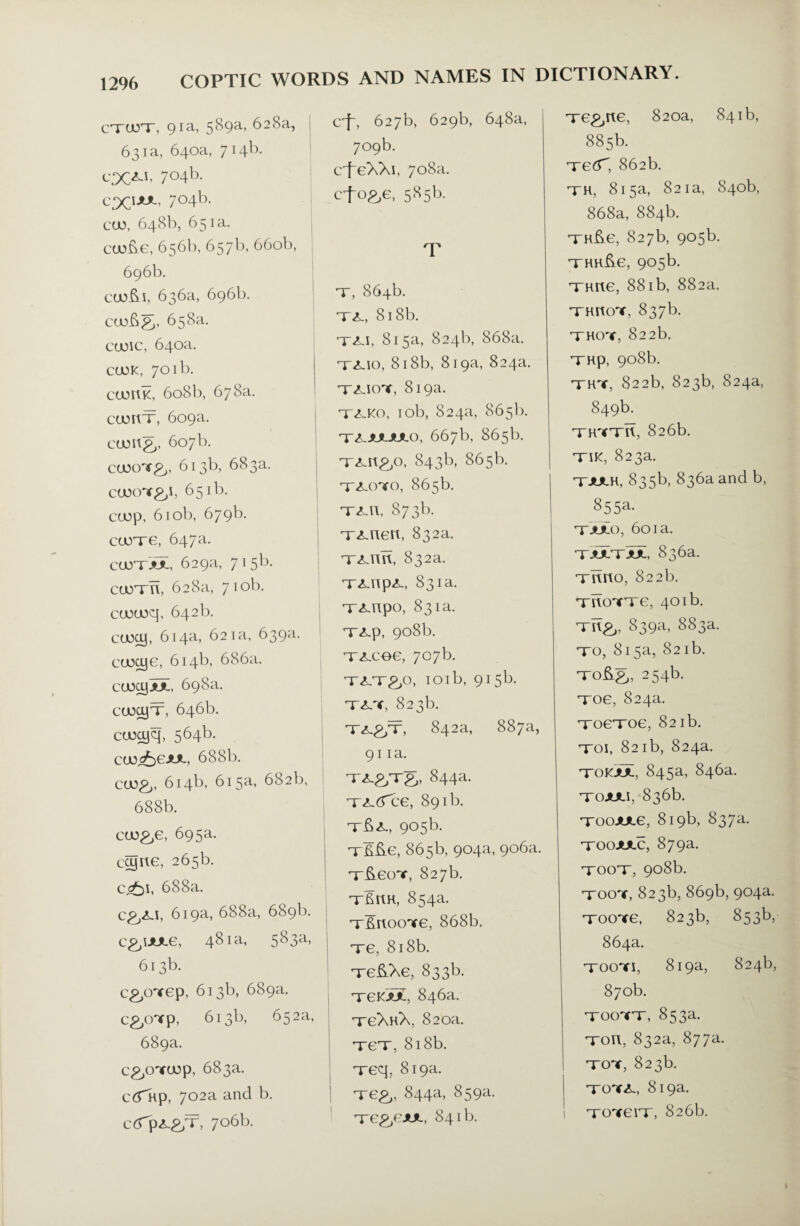 1296 COPTIC WORDS AND NAMES IN DICTIONARY.
ⲥⲧⲱⲧ, 91a, 589a, 628a,
631a, 640a, 714b.
ⲥⲭⲁⲓ, 704b.
ⲥⲭⲓⲙ, 704b.
ⲥⲱ, 648b, 651a.
ⲥⲱⲃⲉ, 656b, 657b, 660b,
696b.
ⲥⲱⲃⲓ, 636a, 696b.
ⲥⲱⲃϩ, 658a.
ⲥⲱⲓⲥ, 640a.
ⲥⲱⲕ, 701b.
ⲥⲱⲛⲕ̅, 608b, 678a.
ⲥⲱⲛⲧ̅, 609a.
ⲥⲱⲛϩ̅, 607b.
ⲥⲱⲟⲩϩ, 613b, 683a.
ⲥⲱⲟⲩϩⲓ, 651b.
ⲥⲱⲣ, 610b, 679b.
ⲥⲱⲧⲉ, 647a.
ⲥⲱⲧⲙ̅, 629a, 715b.
ⲥⲱⲧⲡ̅, 628a, 710b.
ⲥⲱⲱϥ, 642b.
ⲥⲱϣ, 614a, 621a, 639a.
ⲥⲱϣⲉ, 614b, 686a.
ⲥⲱϣⲙ̅, 698a.
ⲥⲱϣⲧ̅, 646b.
ⲥⲱϣϥ̅, 564b.
ⲥⲱϧⲉⲙ, 688b.
ⲥⲱϩ, 614b, 615a, 682b,
688b.
ⲥⲱϩⲉ, 695a.
ⲥϣ̅ⲛⲉ, 265b.
ⲥϧⲓ, 688a.
ⲥϩⲁⲓ, 619a, 688a, 689b.
ⲥϩⲓⲙⲉ, 481a, 583a,
613b.
ⲥϩⲟⲩⲉⲣ, 613b, 689a.
ⲥϩⲟⲩⲣ, 613b, 652a,
689a.
ⲥϩⲟⲩⲱⲣ, 683a.
ⲥϭⲏⲣ, 702a and b.
ⲥϭⲣⲁϩⲧ̅, 706b.
ⲥϯ, 627b, 629b, 648a,
709b.
ⲥϯⲉⲗⲗⲓ, 708a.
ⲥϯⲟϩⲉ, 585b.
T
ⲧ, 864b.
ⲧⲁ, 818b.
ⲧⲁⲓ, 815a, 824b, 868a.
ⲧⲁⲓⲟ, 818b, 819a, 824a.
ⲧⲁⲓⲟⲩ, 819a.
ⲧⲁⲕⲟ, 10b, 824a, 865b.
ⲧⲁⲙⲙⲟ, 667b, 865b.
ⲧⲁⲛϩⲟ, 843b, 865b.
ⲧⲁⲟⲩⲟ, 865b.
ⲧⲁⲡ, 873b.
ⲧⲁⲡⲉⲛ, 832a.
ⲧⲁⲡⲛ̅, 832a.
ⲧⲁⲡⲣⲁ, 831a.
ⲧⲁⲡⲣⲟ, 831a.
ⲧⲁⲣ, 908b.
ⲧⲁⲥⲑⲉ, 707b.
ⲧⲁⲧϩⲟ, 101b, 915b.
ⲧⲁⲩ, 823b.
ⲧⲁϩⲧ̅, 842a, 887a,
911a.
ⲧⲁϩⲧϩ̅, 844a.
ⲧⲁϭⲥⲉ, 891b.
ⲧⲃⲁ, 905b.
ⲧⲃ̅ⲃⲉ, 865b, 904a, 906a.
ⲧⲃⲉⲟⲩ, 827b.
ⲧⲃ̅ⲛⲏ, 854a.
ⲧⲃ̅ⲛⲟⲟⲩⲉ, 868b.
ⲧⲉ, 818b.
ⲧⲉⲃⲗⲉ, 833b.
ⲧⲉⲕⲙ̅, 846a.
ⲧⲉⲗⲏⲗ, 820a.
ⲧⲉⲧ, 818b.
ⲧⲉϥ, 819a.
ⲧⲉϩ, 844a, 859a.
ⲧⲉϩⲉⲙ, 841b.
ⲧⲉϩⲛⲉ, 820a, 841b,
885b.
ⲧⲉϭ, 862b.
ⲧⲏ, 815a, 821a, 840b,
868a, 884b.
ⲧⲏⲃⲉ, 827b, 905b.
ⲧⲏⲏⲃⲉ, 905b.
ⲧⲏⲛⲉ, 881b, 882a.
ⲧⲏⲛⲟⲩ, 837b.
ⲧⲏⲟⲩ, 822b.
ⲧⲏⲣ, 908b.
ⲧⲏⲩ, 822b, 823b, 824a,
849b.
ⲧⲏⲩⲧⲛ̅, 826b.
ⲧⲓⲕ, 823a.
ⲧⲙⲏ, 835b, 836a and b,
855a.
ⲧⲙ̅ⲟ, 601a.
ⲧⲙ̅ⲧⲙ̅, 836a.
ⲧⲛ̅ⲛⲟ, 822b.
ⲧⲛ̅ⲟⲩⲧⲉ, 401b.
ⲧⲛ̅ϩ, 839a, 883a.
ⲧⲟ, 815a, 821b.
ⲧⲟⲃϩ̅, 254b.
ⲧⲟⲉ, 824a.
ⲧⲟⲉⲧⲟⲉ, 821b.
ⲧⲟⲓ, 821b, 824a.
ⲧⲟⲕⲙ̅, 845a, 846a.
ⲧⲟⲙⲓ, 836b.
ⲧⲟⲟⲙⲉ, 819b, 837a.
ⲧⲟⲟⲙⲥ̅, 879a.
ⲧⲟⲟⲧ, 908b.
ⲧⲟⲟⲩ, 823b, 869b, 904a.
ⲧⲟⲟⲩⲉ, 823b, 853b,
864a.
ⲧⲟⲟⲩⲓ, 819a, 824b,
870b.
ⲧⲟⲟⲩⲧ, 853a.
ⲧⲟⲡ, 832a, 877a.
ⲧⲟⲩ, 823b.
ⲧⲟⲩⲁ, 819a.
ⲧⲟⲩⲉⲓⲧ, 826b.